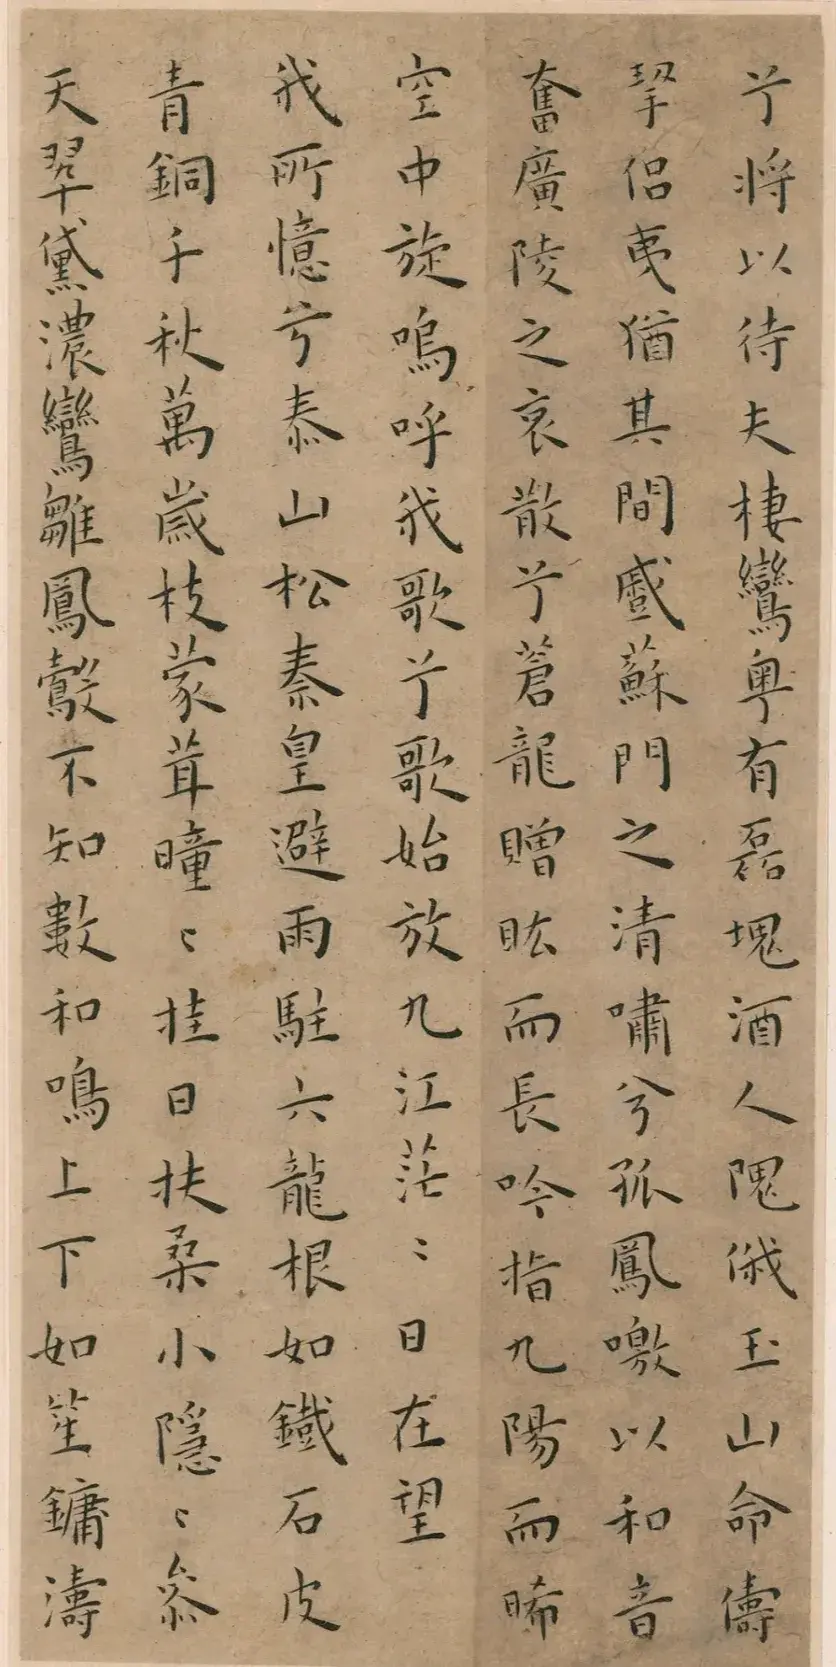 兮将以待夫棲鸞粤有磊塊酒人隗俄玉山命儔
挐侣夷猶其間戲蘇門之清嘯兮孤鳳噭以和音
奮廣陵之哀散兮蒼龍贈眩而長吟指九陽而晞
空中旋嗚呼我歌兮歌始放九江茫〻日在望
我所憶兮泰山松秦皇避雨駐六龍根如鐵石皮
青銅千秋萬歲枝蒙茸瞳〻挂日扶桑小隱〻叅
天翠黛濃鸞雛鳳鷇不知數和鳴上下如笙鏞濤